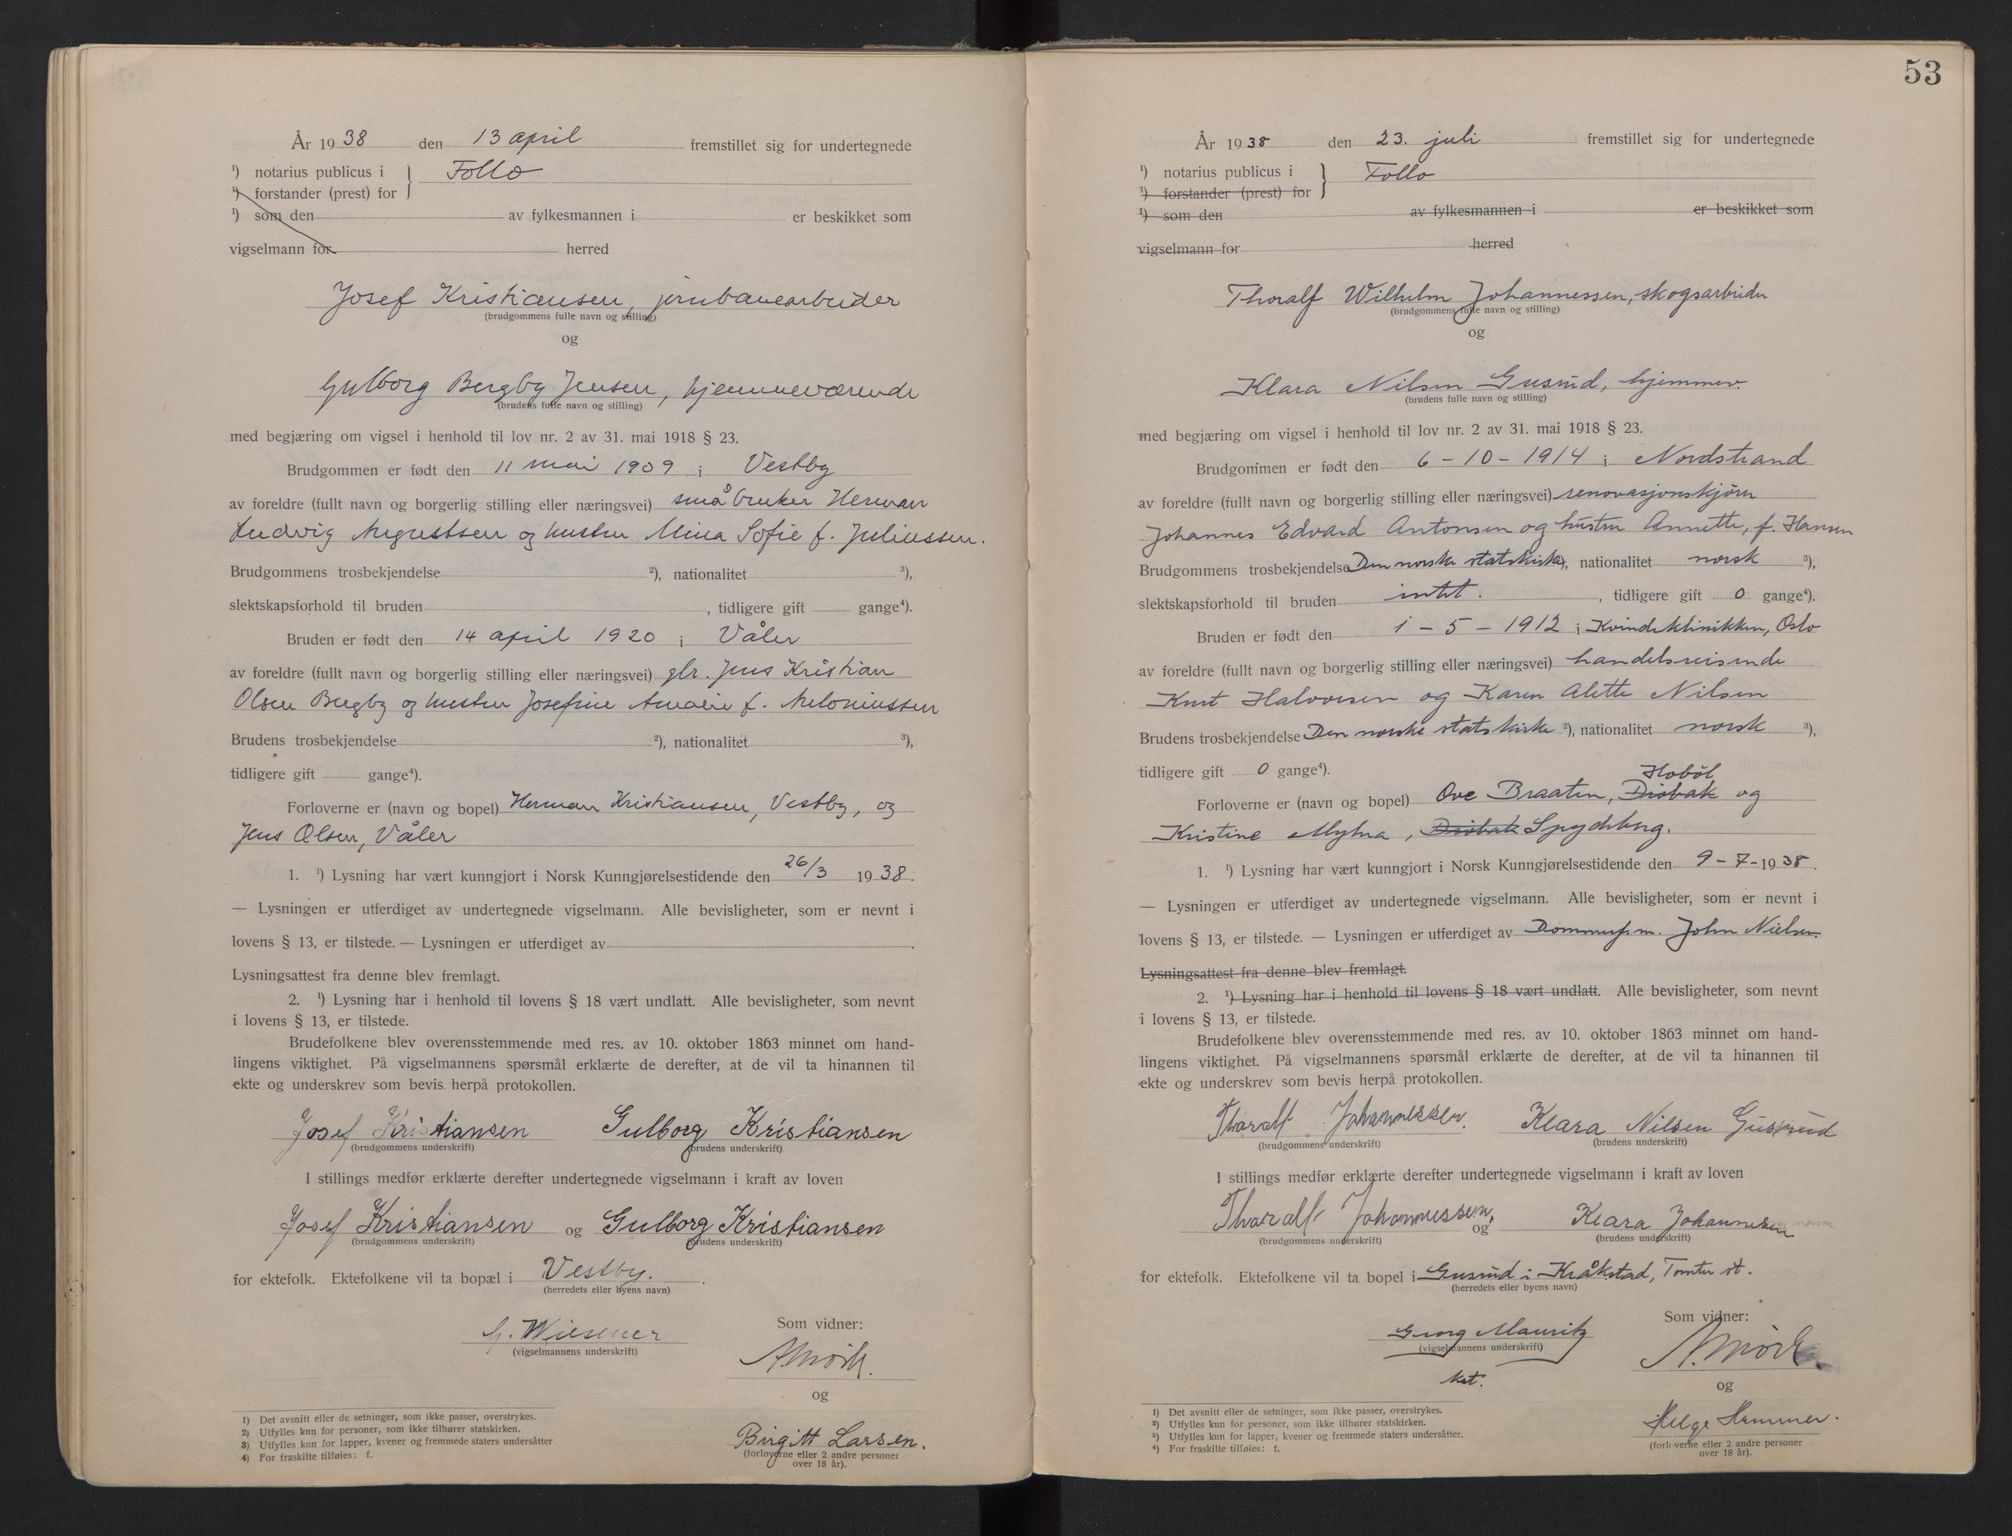 År 1938 den 13 april fremstillet sig for undertegnede
¹) notarius publicus i } Follo
¹) forstander (prest) for
¹) som den av fylkesmannen i er beskikket som
vigselmann for herred
Josef Kristiansen, jernbanearbeider
(brudgommens fulle navn og stilling)
og
Gulborg Bergby Jensen, hjemmeværende
(brudens fulle navn og stilling)
med begjæring om vigsel i henhold til lov nr. 2 av 31. mai 1918 § 23.
Brudgommen er født den 11 mai 1909 i Vestby
av foreldre (fullt navn og borgerlig stilling eller næringsvei) småbruker Herman
Ludvig Augustsen og hustru Mina Sofie f. Juliussen.
Brudgommens trosbekjendelse ²), nationalitet ³),
slektskapsforhold til bruden , tidligere gift gange⁴).
Bruden er født den 14 april 1920 i Våler
av foreldre (fullt navn og borgerlig stilling eller næringsvei) gbr. Jens Kristian
Olsen Bergby og hustru Josefine Amalie f.
Brudens trosbekjendelse ²), nationalitet ³),
tidligere gift gange⁴).
Forloverne er (navn og bopel) Herman Kristiansen, Vestby, og
Jens Olsen, Våler
1. ¹) Lysning har vært kunngjort i Norsk Kunngjørelsestidende den 26/3 1938.
— Lysningen er utferdiget av undertegnede vigselmann. Alle bevisligheter, som er nevnt i
lovens § 13, er tilstede. — Lysningen er utferdiget av .
Lysningsattest fra denne blev fremlagt.
2. ¹) Lysning har i henhold til lovens § 18 vært undlatt. Alle bevisligheter, som nevnt
i lovens § 13, er tilstede.
Brudefolkene blev overensstemmende med res. av 10. oktober 1863 minnet om hand-
lingens viktighet. På vigselmannens spørsmål erklærte de derefter, at de vil ta hinannen til
ekte og underskrev som bevis herpå protokollen.
Josef Kristiansen Gulborg Kristiansen
(brudgommens underskrift) (brudens underskrift)
I stillings medfør erklærte derefter undertegnede vigselmann i kraft av loven
Josef Kristiansen og Gulborg Kristiansen
(brudgommens underskrift) (brudens underskrift)
for ektefolk. Ektefolkene vil ta bopæl i Vestby.
(herredets eller byens navn)
G. Wiesener
(vigselmannens underskrift)
Som vidner:
A Mørk.
og
Birgitt Larsen.
(forloverne eller 2 andre personer
over 18 år).
1) Det avsnitt eller de setninger, som ikke passer, overstrykes.
2) Utfylles kun for personer, som ikke tilhører statskirken.
3) Utfylles kun for lapper, kvener og fremmede staters undersåtter
4) For fraskilte tilføies: f.
53
År 1938 den 23. juli fremstillet sig for undertegnede
¹) notarius publicus i } Follo
¹) forstander (prest) for
¹) som den av fylkesmannen i er beskikket som
vigselmann for herred
Thoralf Wilhelm Johannessen, skogsarbeider
(brudgommens fulle navn og stilling)
og
Klara Nilsen Gusrud, hjemmev.
(brudens fulle navn og stilling)
med begjæring om vigsel i henhold til lov nr. 2 av 31. mai 1918 § 23.
Brudgommen er født den 6 - 10 - 1914 i Nordstrand
av foreldre (fullt navn og borgerlig stilling eller næringsvei) renovasjonskjører
Johannes Edvard Antonsen og hustru Annette, f. Hansen
Brudgommens trosbekjendelse Den norske statskirke ²), nationalitet norsk ³),
slektskapsforhold til bruden intet. , tidligere gift 0 gange⁴).
Bruden er født den 1 - 5 - 1912 i Kvindeklinikken, Oslo
av foreldre (fullt navn og borgerlig stilling eller næringsvei) handelsreisende
Knut Halvorsen og Karen Alette Nilsen
Brudens trosbekjendelse Den norske statskirke ²), nationalitet norsk ³),
tidligere gift 0 gange⁴).
Hobøl
Forloverne er (navn og bopel) Ove Braaten, Drøbak og
Kristine Myhra, Drøbak Spydeberg.
1. ¹) Lysning har vært kunngjort i Norsk Kunngjørelsestidende den 9 - 7 - 1938.
— Lysningen er utferdiget av undertegnede vigselmann. Alle bevisligheter, som er nevnt i
lovens § 13, er tilstede. — Lysningen er utferdiget av Dommerfm. John Nielsen.
Lysningsattest fra denne blev fremlagt.
2. ¹) Lysning har i henhold til lovens § 18 vært undlatt. Alle bevisligheter, som nevnt
i lovens § 13, er tilstede.
Brudefolkene blev overensstemmende med res. av 10. oktober 1863 minnet om hand-
lingens viktighet. På vigselmannens spørsmål erklærte de derefter, at de vil ta hinannen til
ekte og underskrev som bevis herpå protokollen.
Tharalf Johannessen. Klara Nilsen Gusrud
(brudgommens underskrift) (brudens underskrift)
I stillings medfør erklærte derefter undertegnede vigselmann i kraft av loven
Tharalf Johannessen, og Klara Johannesen
(brudgommens underskrift) (brudens underskrift)
for ektefolk. Ektefolkene vil ta bopel i Gusrud i Kråkstad, Tomter st.
(herredets eller byens navn)
Georg Mauritz
(vigselmannens underskrift)
kst.
Som vidner:
A. Mørk.
og
Helge Hemmer.
(forloverne eller 2 andre personer
over 18 år).
1) Det avsnitt eller de setninger, som ikke passer, overstrykes.
2) Utfylles kun for personer, som ikke tilhører statskirken.
3) Utfylles kun for lapper, kvener og fremmede staters undersåtter.
4) For fraskilte tilføies: f.